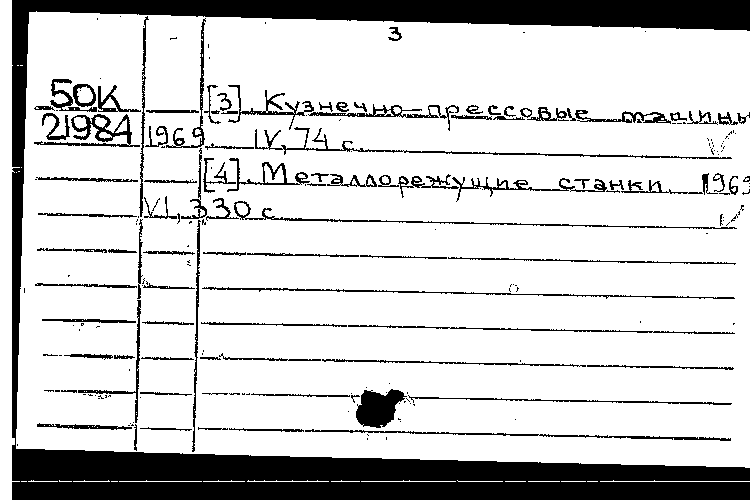 3
50К
[3]. Кузнечно-прессовые машины
21984 1969. IV, 74 с.
[4]. Металлорежущие станки. 1969
VI, 330 с